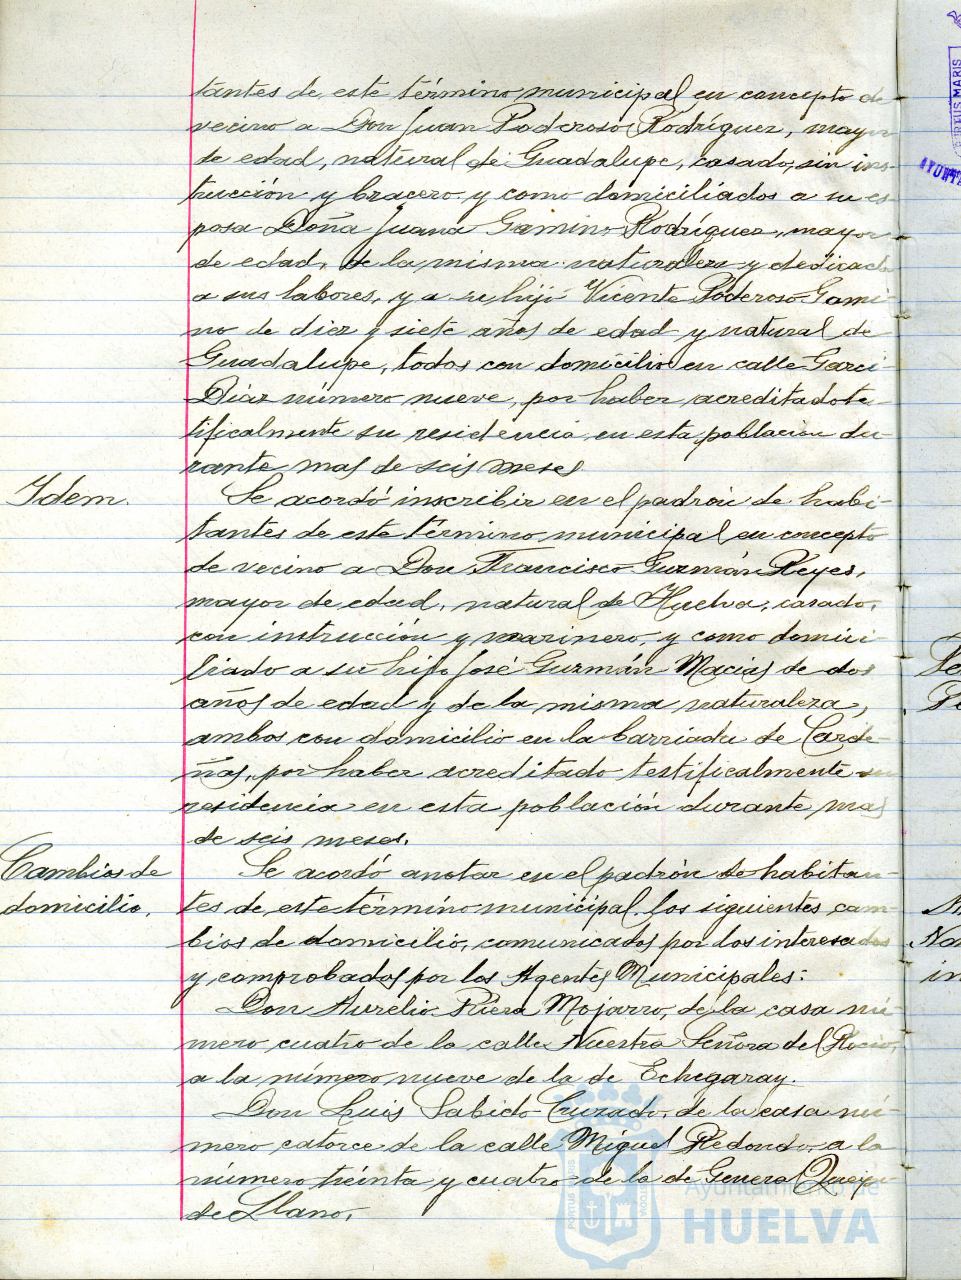 tantes de este término municipal en concepto de
vecino a Don Juan Poderoso Rodríguez, mayor
de edad, natural de Guadalupe, casado, sin ins-
trucción y bracero y como domiciliados a su es-
posa Doña Juana Gamino Rodríguez, mayor
de edad, de la misma naturaleza y dedicada
a sus labores, y a su hijo Vicente Poderoso Gami-
no de diez y siete años de edad y natural de
Guadalupe, todos con domicilio en calle Garci-
Díaz número nueve, por haber acreditado te-
tificalmente su residencia en esta población du-
rante mas de seis meses
Idem.
Se acordó inscribir en el padrón de habi-
tantes de este término municipal en concepto
de vecino a Don Francisco Guzmán Reyes,
mayor de edad, natural de Huelva, casado,
con instrucción y marinero, y como domici-
liado a su hijo José Guzmán Macias de dos
años de edad y de la misma naturaleza,
ambos con domicilio en la barriada de Carde-
ñas, por haber acreditado testificalmente su
residencia en esta población durante mas
de seis meses.
Cambios de
domicilio.
Se acordó anotar en el padrón de habitan-
tes de este término municipal los siguientes cam-
bios de domicilio, comunicados por los interesados
y comprobados por los Agentes Municipales:
Don Aurelio Riera Mojarro, de la casa nú-
mero cuatro de la calle Nuestra Señora del Rocio,
a la número nueve de la de Echegaray.
Don Luis Sabido Curado, de la casa nú-
mero catorce de la calle Miguel Redondo, a la
número treinta y cuatro de la de General Queipo
de Llano.
Ayuntamiento de
HUELVA